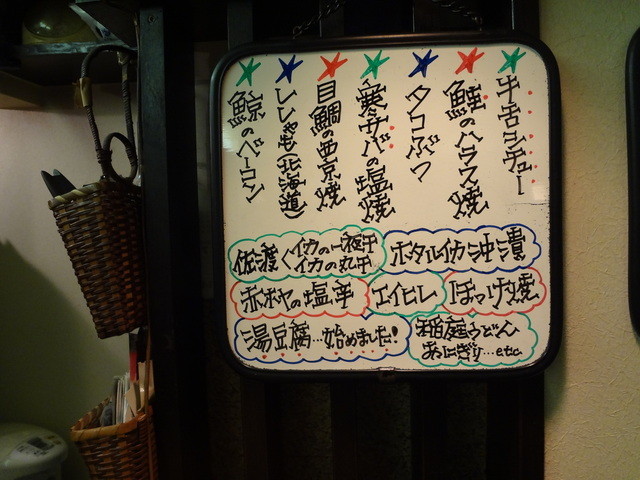 牛舌シチュー
鮭のハラス焼
タコぶつ
寒サバの塩焼
目鯛の西京焼
ししゃも(北海道)
鯨のベーコン
ホタルイカ沖漬
佐渡イカの一夜干
イカの丸干
ほっけ焼
エイヒレ
赤ホヤの塩辛
稲庭うどん
おにぎり…etc.
湯豆腐…始めました!